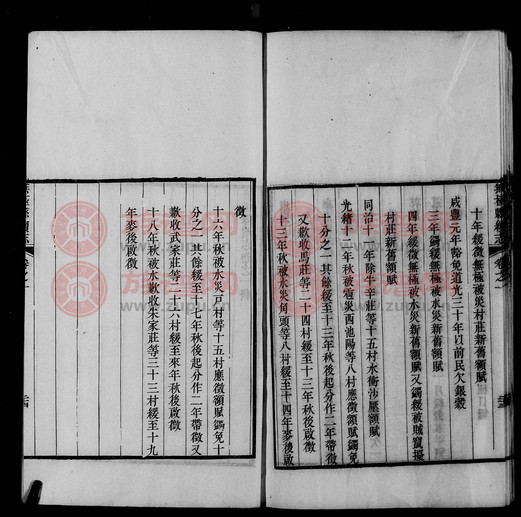 無極縣續志
十年緩徵無極被災村莊新舊額賦
咸豐元年豁免道光三十年以前民欠銀穀
三年蠲緩無極被水災新舊額賦
四年緩徵無極被水災新舊額賦又蠲緩被賊竄擾
村莊新舊額賦
同治十一年除牛辛莊等十五村水衝沙壓額賦
光緒十二年秋被雹災西池陽等八村應徵額賦蠲免
十分之一其餘緩至十三年秋後起分作二年帶徵
又歉收馬莊等二十四村緩至十三年秋後啟徵
十三年秋被水災甪頭等八村緩至十四年麥後啟
徵
十六年秋被水災戶村等十五村應徵額賦蠲免十
分之一其餘緩至十七年秋後起分作二年帶徵又
歉收武家莊等二十六村緩至來年秋後啟徵
十八年秋被水歉收朱家莊等三十三村緩至十九
年麥後啟徵
族譜網
www.zupu.cn